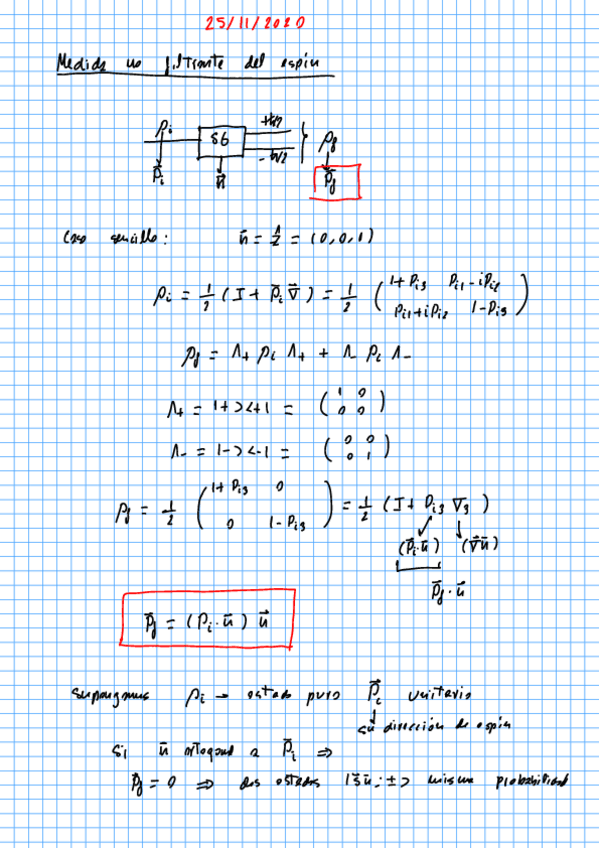 25/11/2020
Medida no filtrante del espín
ρi SG +ħ/2 -ħ/2 } ρf
P⃗i n⃗ P⃗f
Caso sencillo: n⃗ = ẑ = (0,0,1)
ρi = 1/2 (I + P⃗i σ⃗) = 1/2 ( 1+Pi3 Pi1-iPi2
Pi1+iPi2 1-Pi3 )
ρf = Λ+ ρi Λ+ + Λ- ρi Λ-
Λ+ = |+><+| = ( 1 0
0 0 )
Λ- = |-><-| = ( 0 0
0 1 )
ρf = 1/2 ( 1+Pi3 0
0 1-Pi3 ) = 1/2 (I + Pi3 σ3)
(P⃗i·n⃗) (σ⃗n⃗)
P⃗f·n⃗
P⃗f = (Pi·n⃗) n⃗
Supongamos ρi → estado puro P⃗i unitario
su dirección de espín
Si n⃗ ortogonal a P⃗i ⇒
Pf = 0 ⇒ dos estados |Sn⃗;±> misma probabilidad